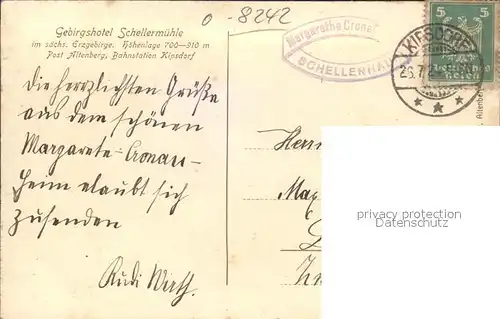 0-8242
Gebirgshotel Schellermühle
im sächs. Erzgebirge. Höhenlage 700—910 m
Post Altenberg, Bahnstation Kipsdorf
Margarethe Cronau
SCHELLERHAU
KIPSDORF
5 5
Deutsches Reich
die herzlichsten Grüße
aus dem schönen
Margarete-Cronau-
heim erlaubt sich
zusenden
Rudi Wirth.
Herrn
Max
privacy protection
Datenschutz